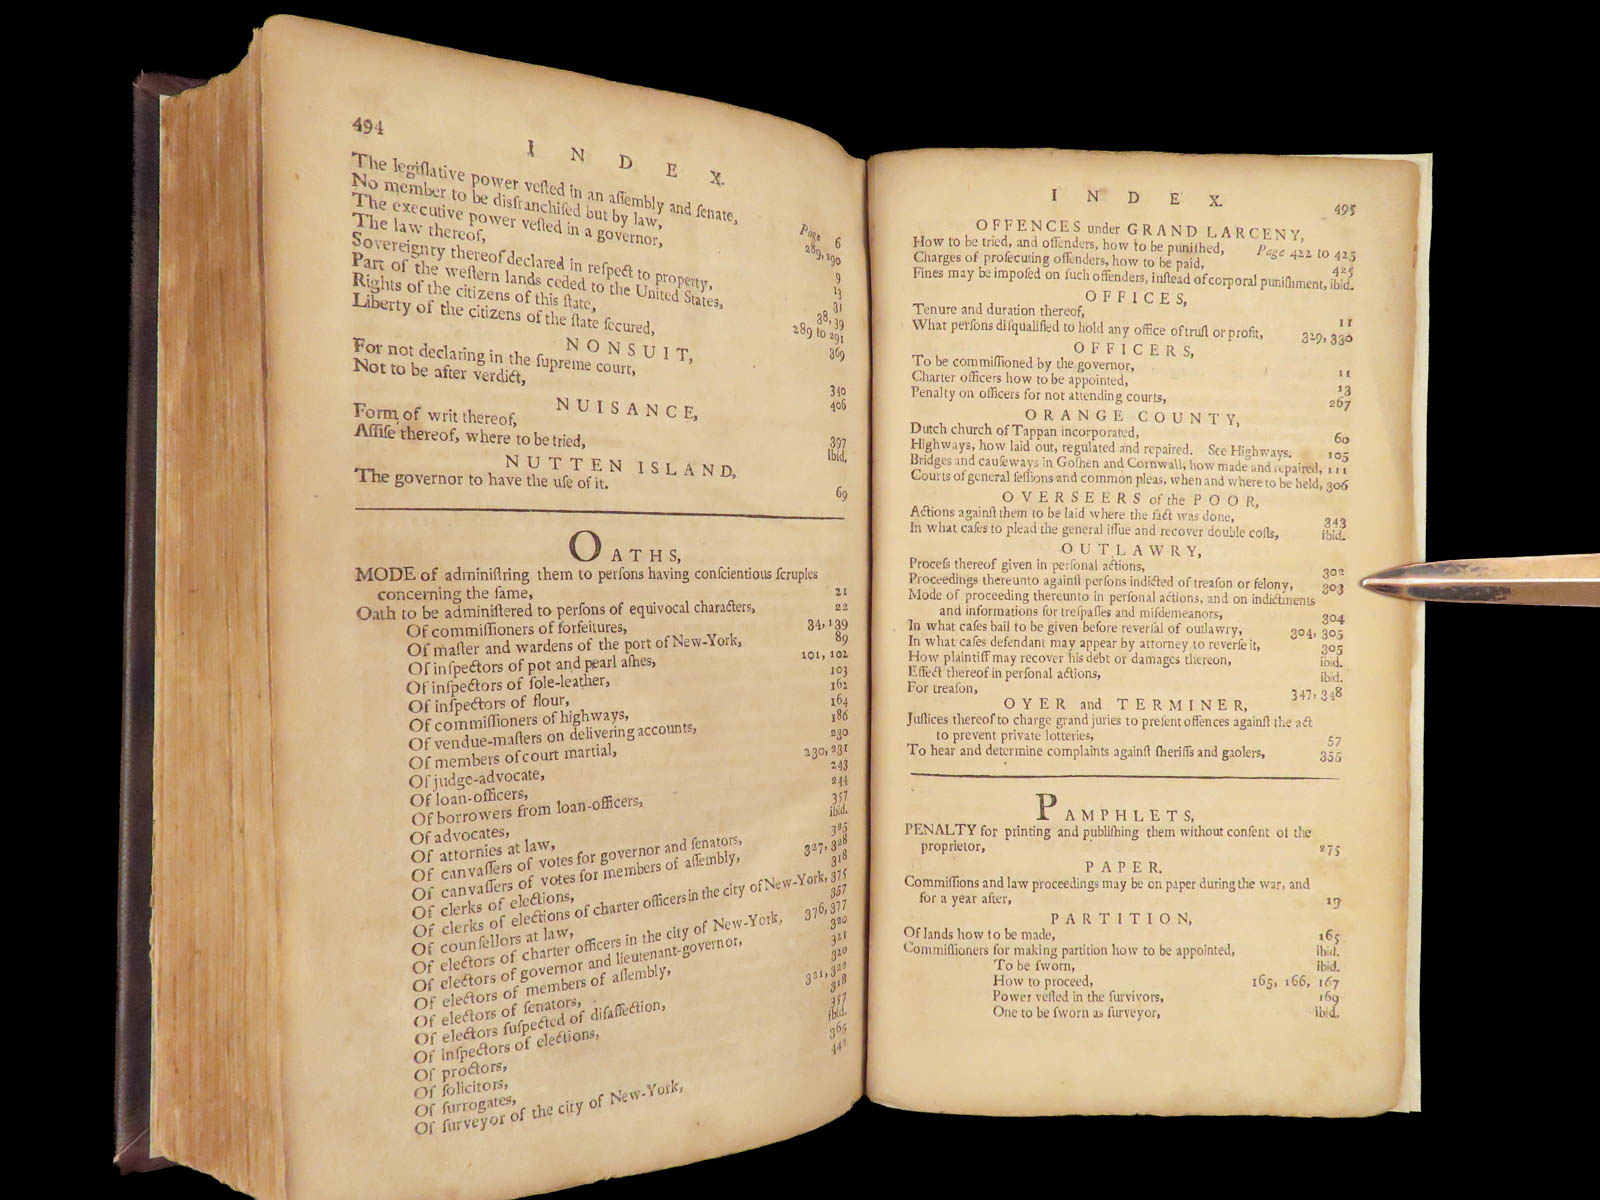 494
INDEX.
The legiſlative power veſted in an aſſembly and ſenate, Page 6
No member to be disfranchiſed but by law, 289, 290
The executive power veſted in a governor, 9
The law thereof, 13
Sovereignty thereof declared in reſpect to property, 31
Part of the weſtern lands ceded to the United States, 38, 39
Rights of the citizens of this ſtate, 289 to 291
Liberty of the citizens of the ſtate ſecured, 369
NONSUIT,
For not declaring in the ſupreme court, 340
Not to be after verdict, 406
NUISANCE,
Form of writ thereof, 397
Aſſiſe thereof, where to be tried, ibid.
NUTTEN ISLAND,
The governor to have the uſe of it. 69
OATHS,
MODE of adminiſtring them to perſons having conſcientious ſcruples
concerning the ſame, 21
Oath to be adminiſtered to perſons of equivocal characters, 22
Of commiſſioners of forfeitures, 34, 139
Of maſter and wardens of the port of New-York, 89
Of inſpectors of pot and pearl aſhes, 101, 102
Of inſpectors of ſole-leather, 103
Of inſpectors of flour, 162
Of commiſſioners of highways, 164
Of vendue-maſters on delivering accounts, 186
Of members of court martial, 230
Of judge-advocate, 230, 231
Of loan-officers, 243
Of borrowers from loan-officers, 244
Of advocates, 357
Of attornies at law, ibid.
Of canvaſſers of votes for governor and ſenators, 325
Of canvaſſers of votes for members of aſſembly, 327, 328
Of clerks of elections, 318
Of clerks of elections of charter officers in the city of New-York, 375
Of counſellors at law, 357
Of electors of charter officers in the city of New-York, 376, 377
Of electors of governor and lieutenant-governor, 320
Of electors of members of aſſembly, 321
Of electors of ſenators, 320
Of electors ſuſpected of diſaffection, 321, 322
Of inſpectors of elections, 318
Of proctors, 357
Of ſolicitors, ibid.
Of ſurrogates, 365
Of ſurveyor of the city of New-York,
INDEX. 495
OFFENCES under GRAND LARCENY,
How to be tried, and offenders, how to be puniſhed, Page 422 to 425
Charges of proſecuting offenders, how to be paid, 425
Fines may be impoſed on ſuch offenders, inſtead of corporal puniſhment, ibid.
OFFICES,
Tenure and duration thereof, 11
What perſons diſqualified to hold any office of truſt or profit, 329, 330
OFFICERS,
To be commiſſioned by the governor, 11
Charter officers how to be appointed, 13
Penalty on officers for not attending courts, 267
ORANGE COUNTY,
Dutch church of Tappan incorporated, 60
Highways, how laid out, regulated and repaired. See Highways. 105
Bridges and cauſeways in Goſhen and Cornwall, how made and repaired, 111
Courts of general ſeſſions and common pleas, when and where to be held, 306
OVERSEERS of the POOR,
Actions againſt them to be laid where the fact was done, 343
In what caſes to plead the general iſſue and recover double coſts, ibid.
OUTLAWRY,
Proceſs thereof given in perſonal actions, 302
Proceedings thereunto againſt perſons indicted of treaſon or felony, 303
Mode of proceeding thereunto in perſonal actions, and on indictments
and informations for treſpaſſes and miſdemeanors, 304
In what caſes bail to be given before reverſal of outlawry, 304, 305
In what caſes defendant may appear by attorney to reverſe it, 305
How plaintiff may recover his debt or damages thereon, ibid.
Effect thereof in perſonal actions, ibid.
For treaſon, 347, 348
OYER and TERMINER,
Juſtices thereof to charge grand juries to preſent offences againſt the act
to prevent private lotteries, 57
To hear and determine complaints againſt ſheriffs and gaolers, 355
PAMPHLETS,
PENALTY for printing and publiſhing them without conſent of the
proprietor, 275
PAPER.
Commiſſions and law proceedings may be on paper during the war, and
for a year after, 19
PARTITION,
Of lands how to be made, 165
Commiſſioners for making partition how to be appointed, ibid.
To be ſworn, ibid.
How to proceed, 165, 166, 167
Power veſted in the ſurvivors, 169
One to be ſworn as ſurveyor, ibid.